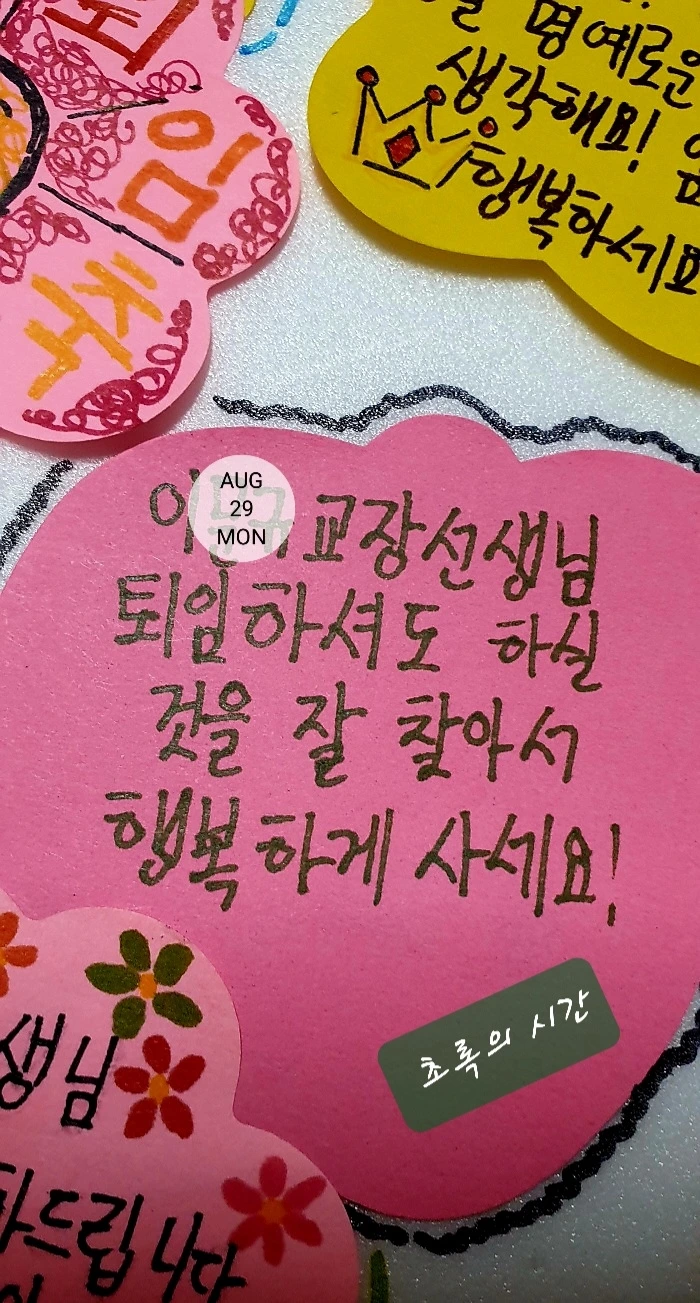 퇴
임
축
명예로운
생각해요!
행복하세요
AUG
29
MON
이 교장선생님
퇴임하셔도 하실
것을 잘 찾아서
행복하게 사세요!
초록의 시간
생님
드립니다